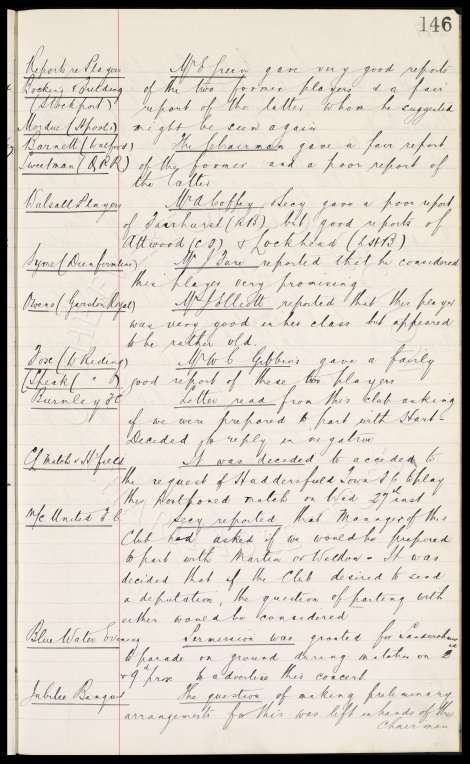 146
Reports re Players Mr E Green gave very good reports
Bocking & Building of the two former players & a fair
(Stockport) report of the latter whom he suggested
Mordue (Hpools) might be seen again
Barnett (Watford) The Chairman gave a fair report
Sweetman (Q P R) of the former and a poor report of
the latter
Walsall Players Mr A Coffey Secy gave a poor report
of Fairhurst (R B) but good reports of
Attwood (C F) & Lockhead (L H B)
Syme (Dunfermline) Mr J Fare reported that he considered
this player very promising
Owens (Garston Royal) Mr J Elliott reported that this player
was very good in his class but appeared
to be rather old.
Fox (W Riding) Mr W C Gibbins gave a fairly
Speak ( " " ) good report of these two players
Burnley F C Letter read from this club asking
if we were prepared to part with Hart -
Decided to reply in negative
C L Match v H'field It was decided to acceded to
the request of Huddersfield Town F C to play
this Postponed match on Wed 27th inst
M/c United F. C. Secy reported that Manager of this
Club had asked if we would be prepared
to part with Martin or Weldon - It was
decided that if the Club desired to send
a deputation, the question of parting with
either would be considered
Blue Water Evening Permission was granted for Sandwichmen
to parade on ground during matches on 2nd
& 9th prox to advertise this concert
Jubilee Banquet The question of making preliminary
arrangements for this was left in hands of the
Chairman